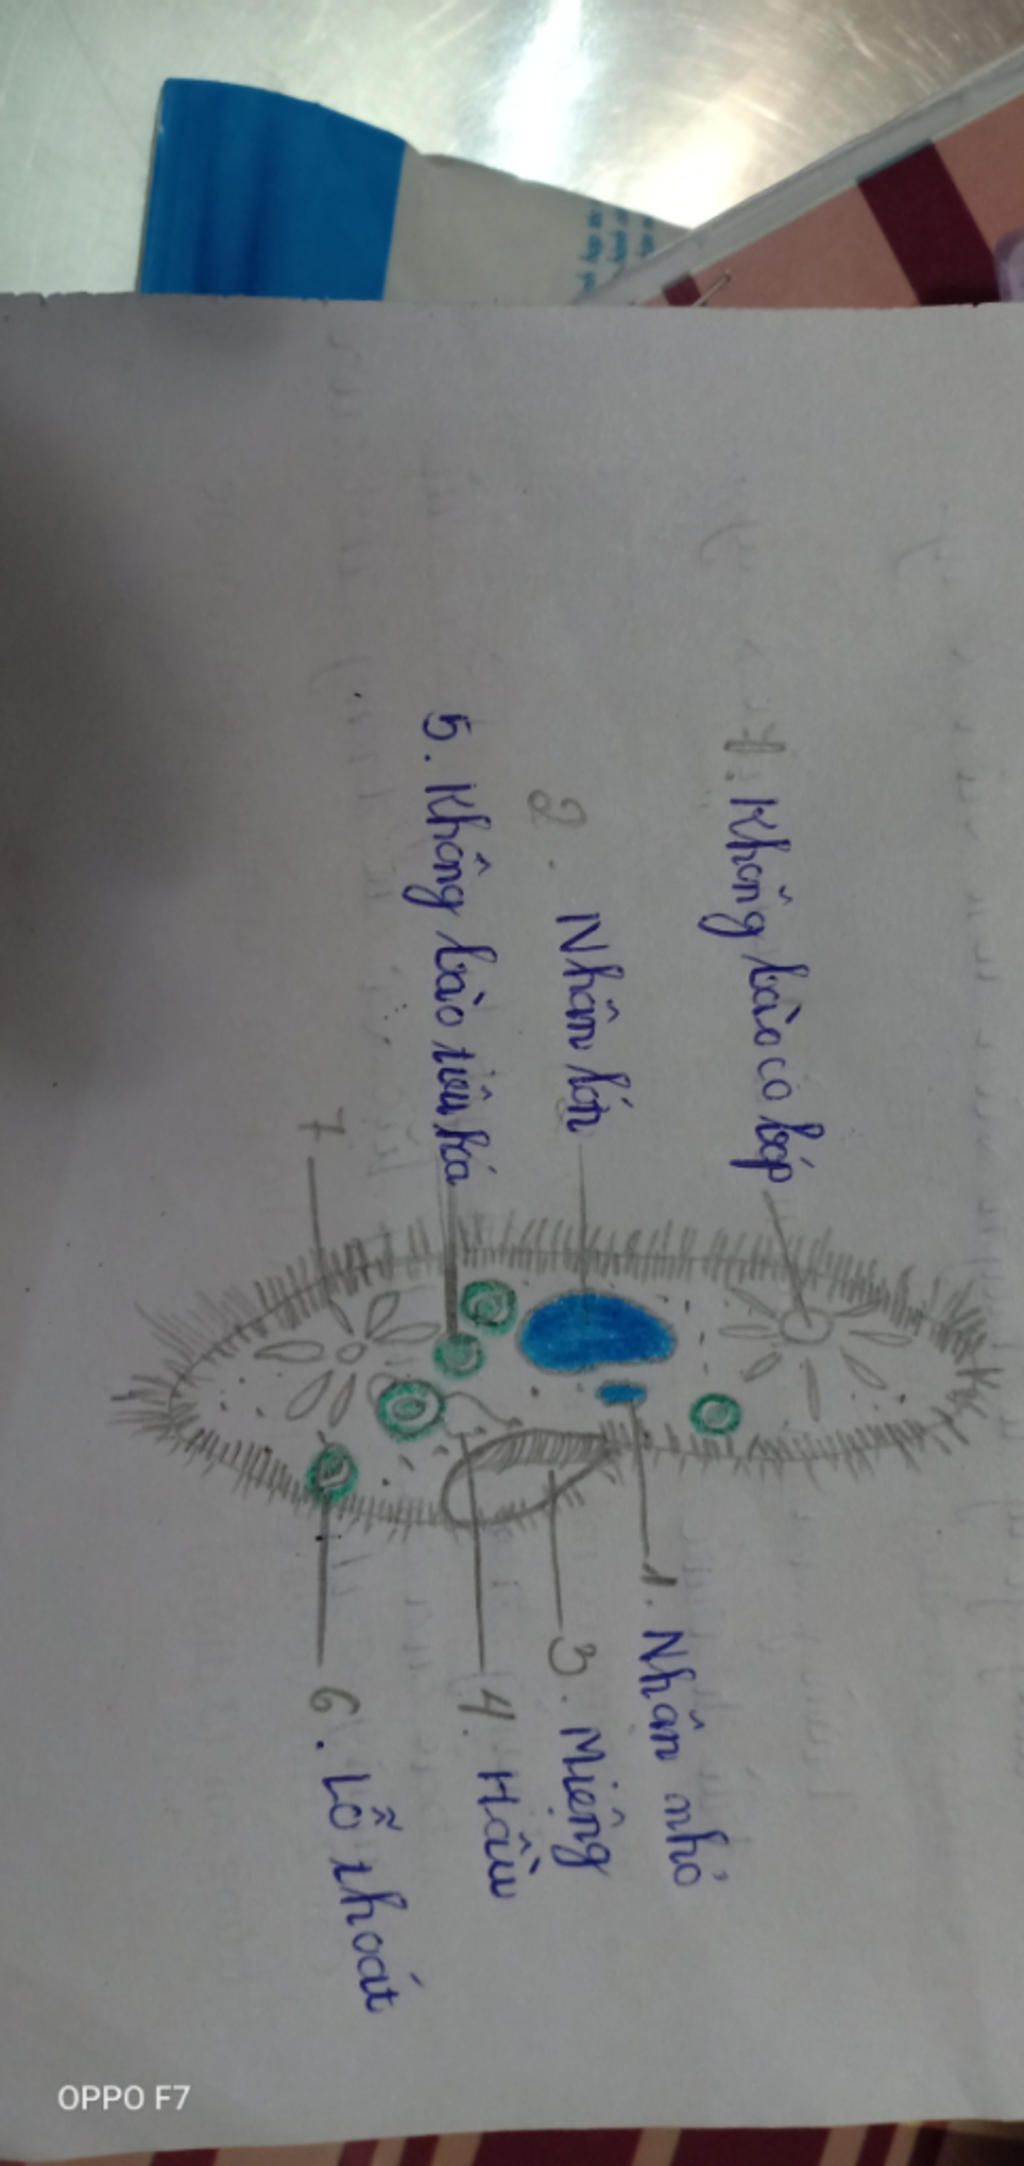 7. Không bào co bóp
1. Nhân nhỏ
2. Nhân lớn
3. Miệng
5. Không bào tiêu hoá
4. Hầu
7
6. Lỗ thoát
OPPO F7